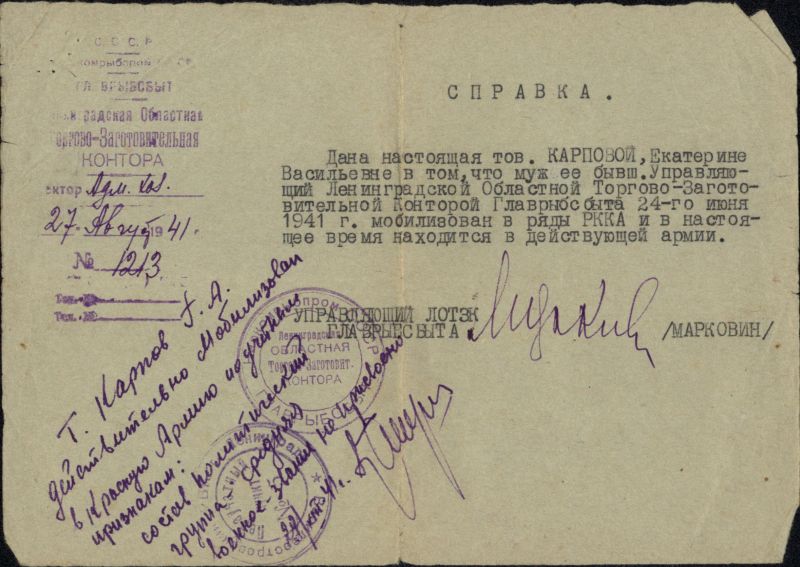 С С С Р
ГЛ. ВРЫБСБЫТ
градская Областная
Торгово-Заготовительная
КОНТОРА
Адм. хоз.
27 Август 1941.
№ 1213
СПРАВКА.
Дана настоящая тов. КАРПОВОЙ, Екатерине
Васильевне в том, что муж ее бывш. Управляю-
щий Ленинградской Областной Торгово-Загото-
вительной Конторой Главрыбсбыта 24-го июня
1941 г. мобилизован в ряды РККА и в настоя-
щее время находится в действующей армии.
УПРАВЛЯЮЩИЙ ЛОТЗК
ГЛАВРЫБСБЫТА
/МАРКОВИН/
Ленинградская
ОБЛАСТНАЯ
Торгово-Заготовит.
КОНТОРА
ГЛАВРЫБСБЫТ
Т. Карпов Г. А.
действительно мобилизован
в Красную Армию по учетным
признакам:
состав политический
группа средняя
военное звание не присвоено